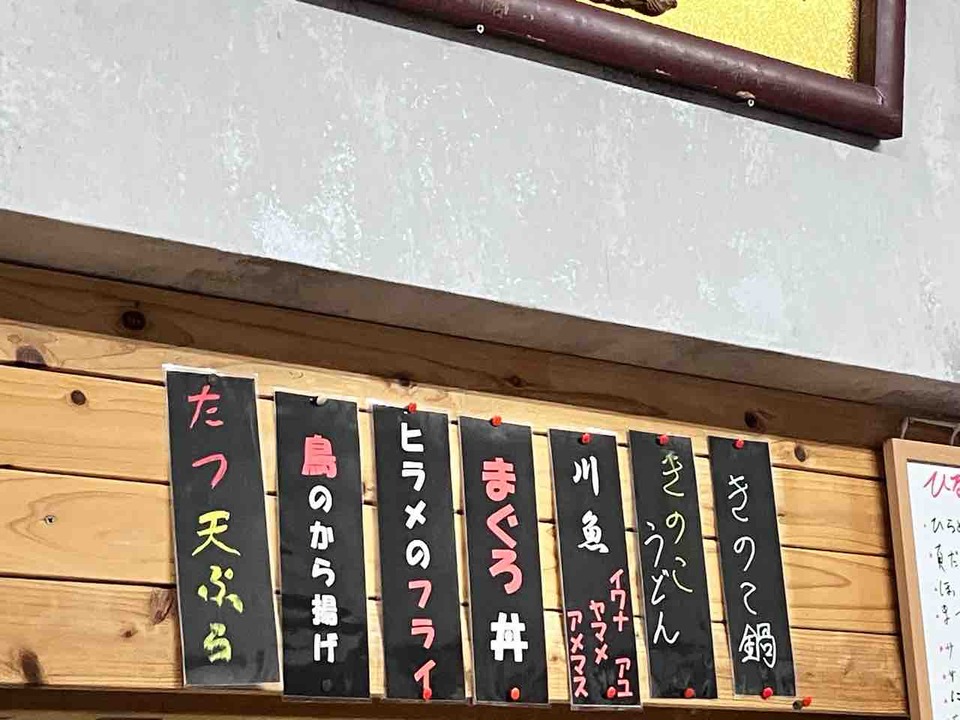 きのこ鍋
きのこ
うどん
川魚
イワナ
ヤマメ
アメマス
アユ
まぐろ丼
ヒラメのフライ
鳥のから揚げ
たつ天ぷら